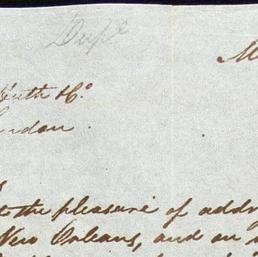 Dupe
M
Huth Ho
London.
t the pleasure of addr
New Orleans, and on